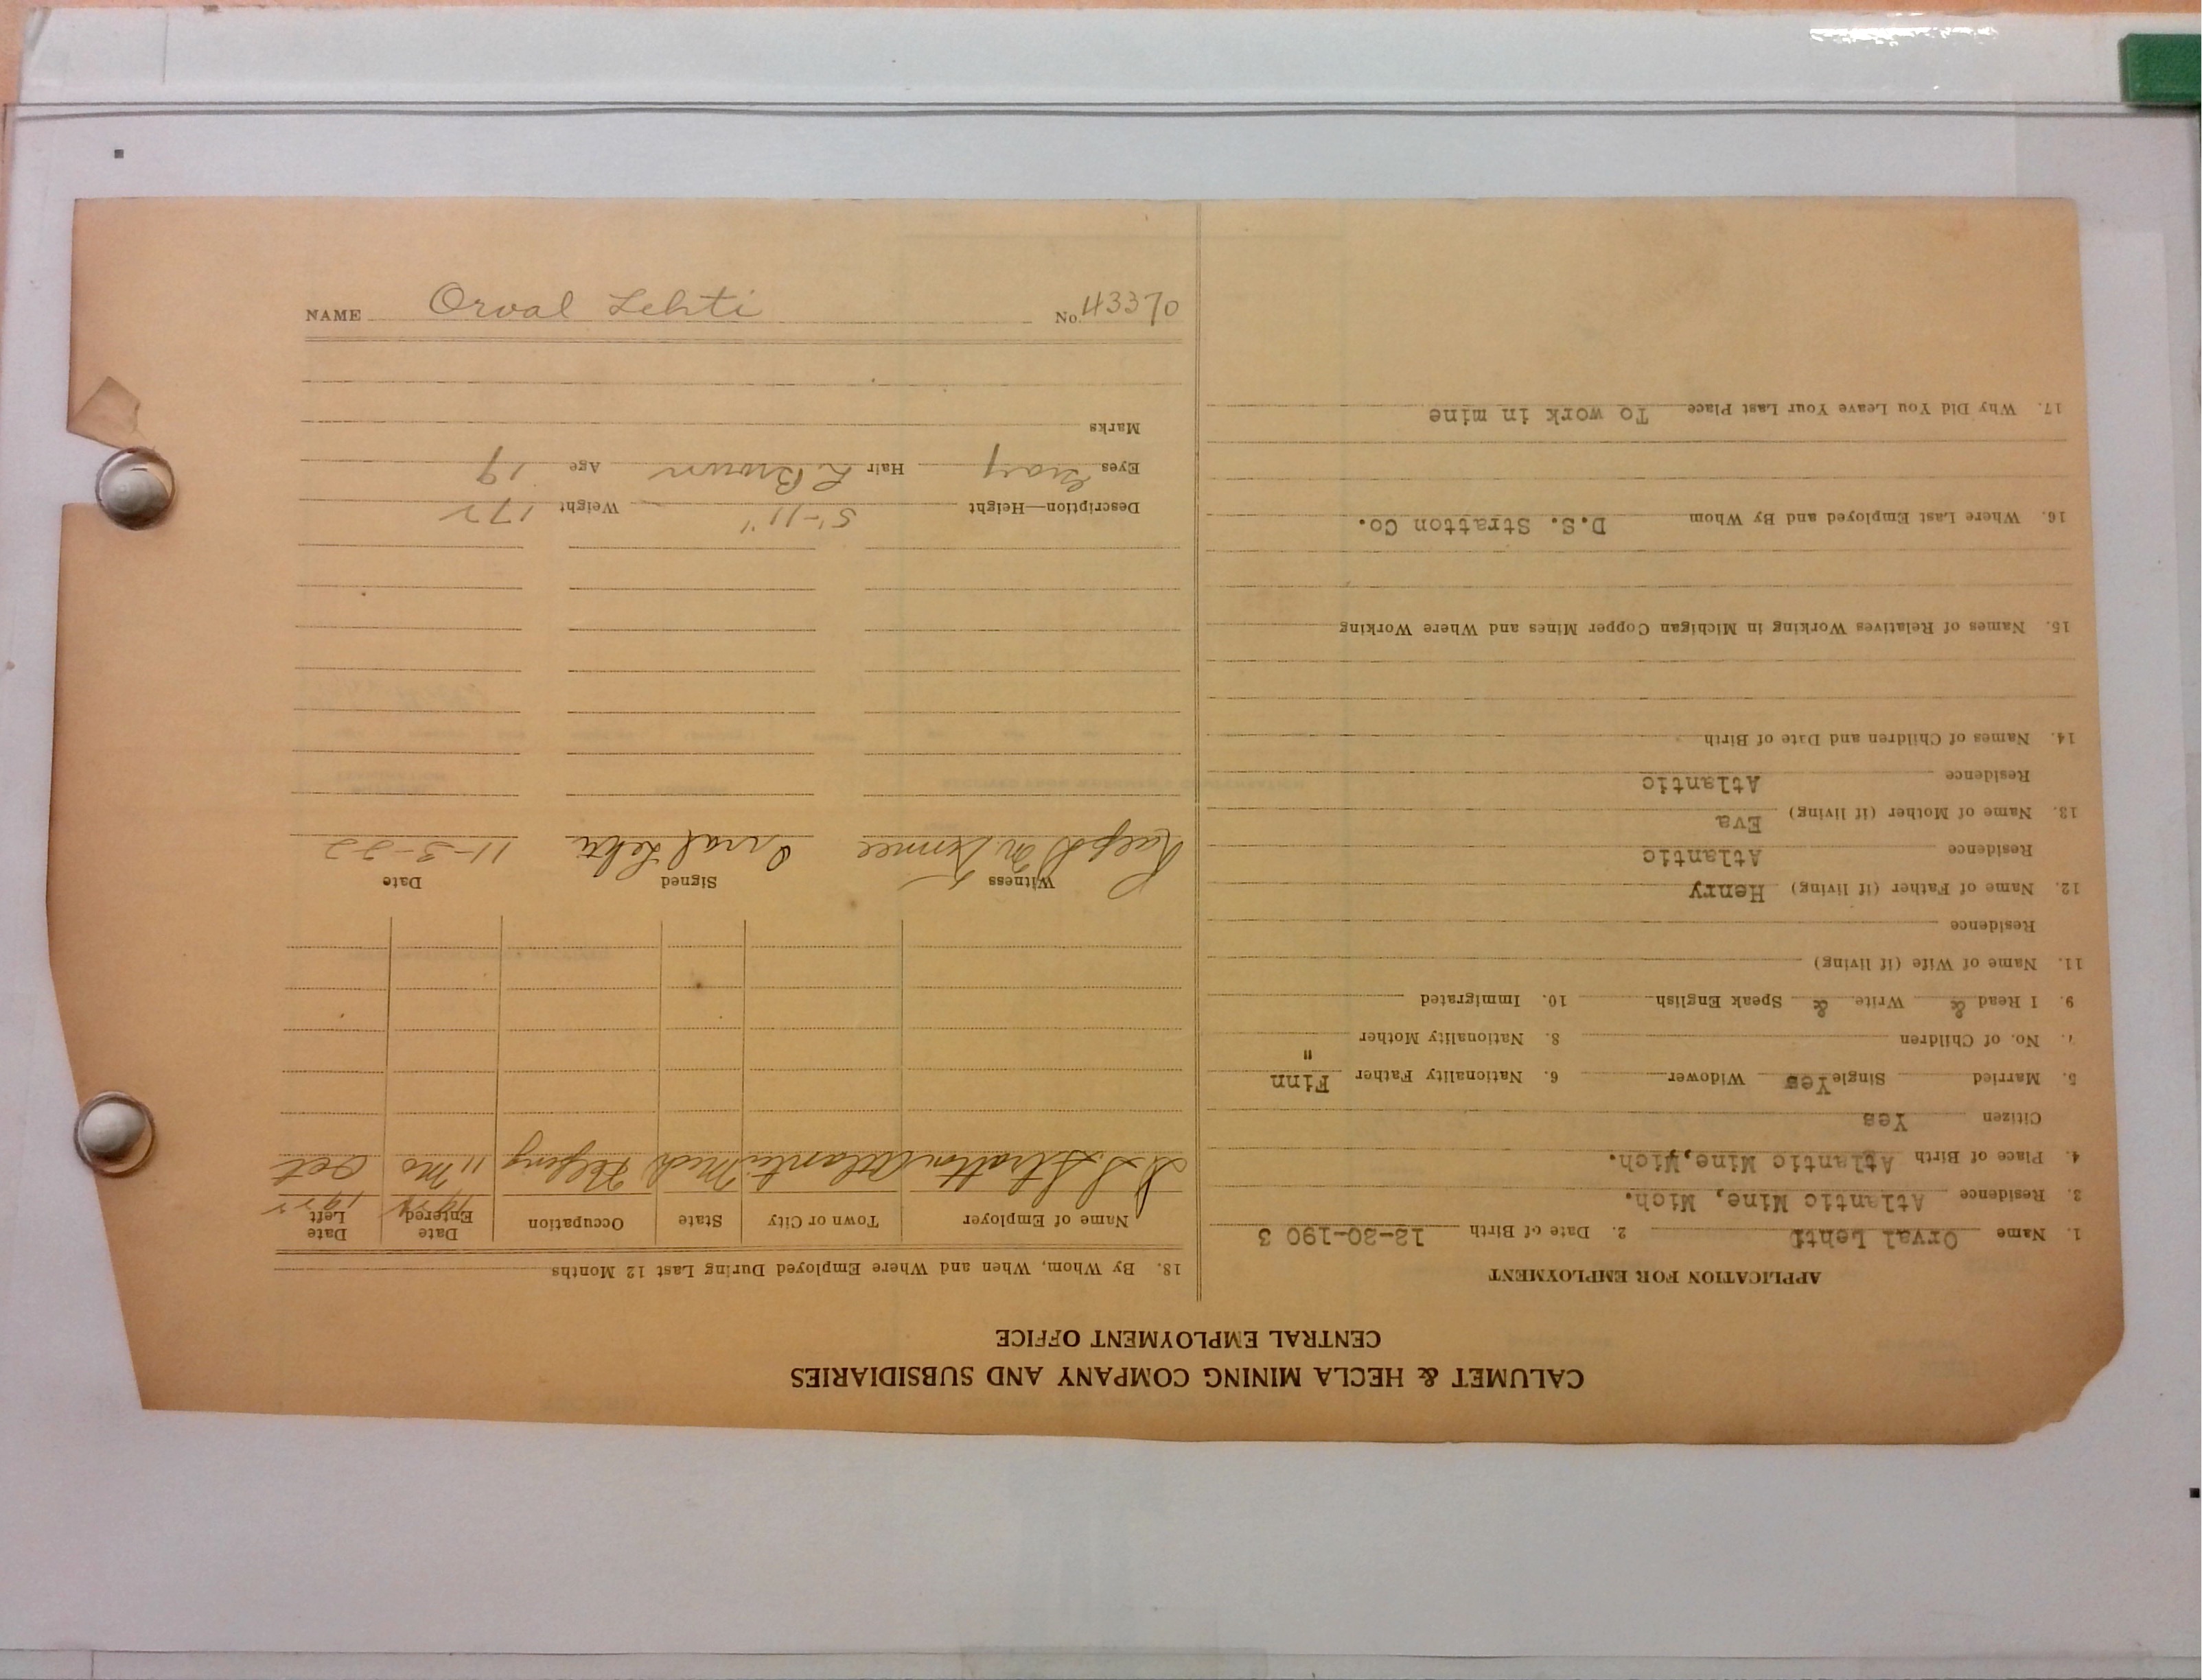 CALUMET & HECLA MINING COMPANY AND SUBSIDIARIES
CENTRAL EMPLOYMENT OFFICE
APPLICATION FOR EMPLOYMENT
1. Name Orval Lehti 2. Date of Birth 12-30-190 3
3. Residence Atlantic Mine, Mich.
4. Place of Birth Atlantic Mine, Mich.
Citizen Yes
5. Married Single Yes Widower 6. Nationality Father Finn
7. No. of Children 8. Nationality Mother "
9. I Read & Write & Speak English 10. Immigrated
11. Name of Wife (if living)
Residence
12. Name of Father (if living) Henry
Residence Atlantic
13. Name of Mother (if living) Eva
Residence Atlantic
14. Names of Children and Date of Birth
15. Names of Relatives Working in Michigan Copper Mines and Where Working
16. Where Last Employed and By Whom D.S. Stratton Co.
17. Why Did You Leave Your Last Place To work in mine
18. By Whom, When and Where Employed During Last 12 Months
Name of Employer Town or City State Occupation Date Entered Date Left
Stratton Atlantic Mich Helping 11 Mo Oct
Witness Signed Date
Orval Lehti 11-3-22
Description—Height 5'-11" Weight 172
Eyes Gray Hair L Brown Age 19
Marks
NAME Orval Lehti No. 43370